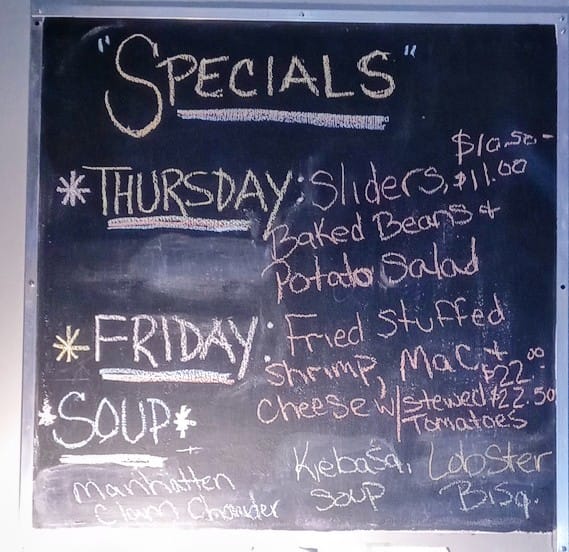 "SPECIALS"
$10.50-
*THURSDAY: Sliders, $11.00
Baked Beans +
Potato Salad
*FRIDAY: Fried Stuffed
Shrimp, Mac +
$22.00-
Cheese w/stewed $22.50
Tomatoes
*SOUP*
Manhatten
Clam Chowder
Kiebasa,
Soup
Lobster
Bisq.